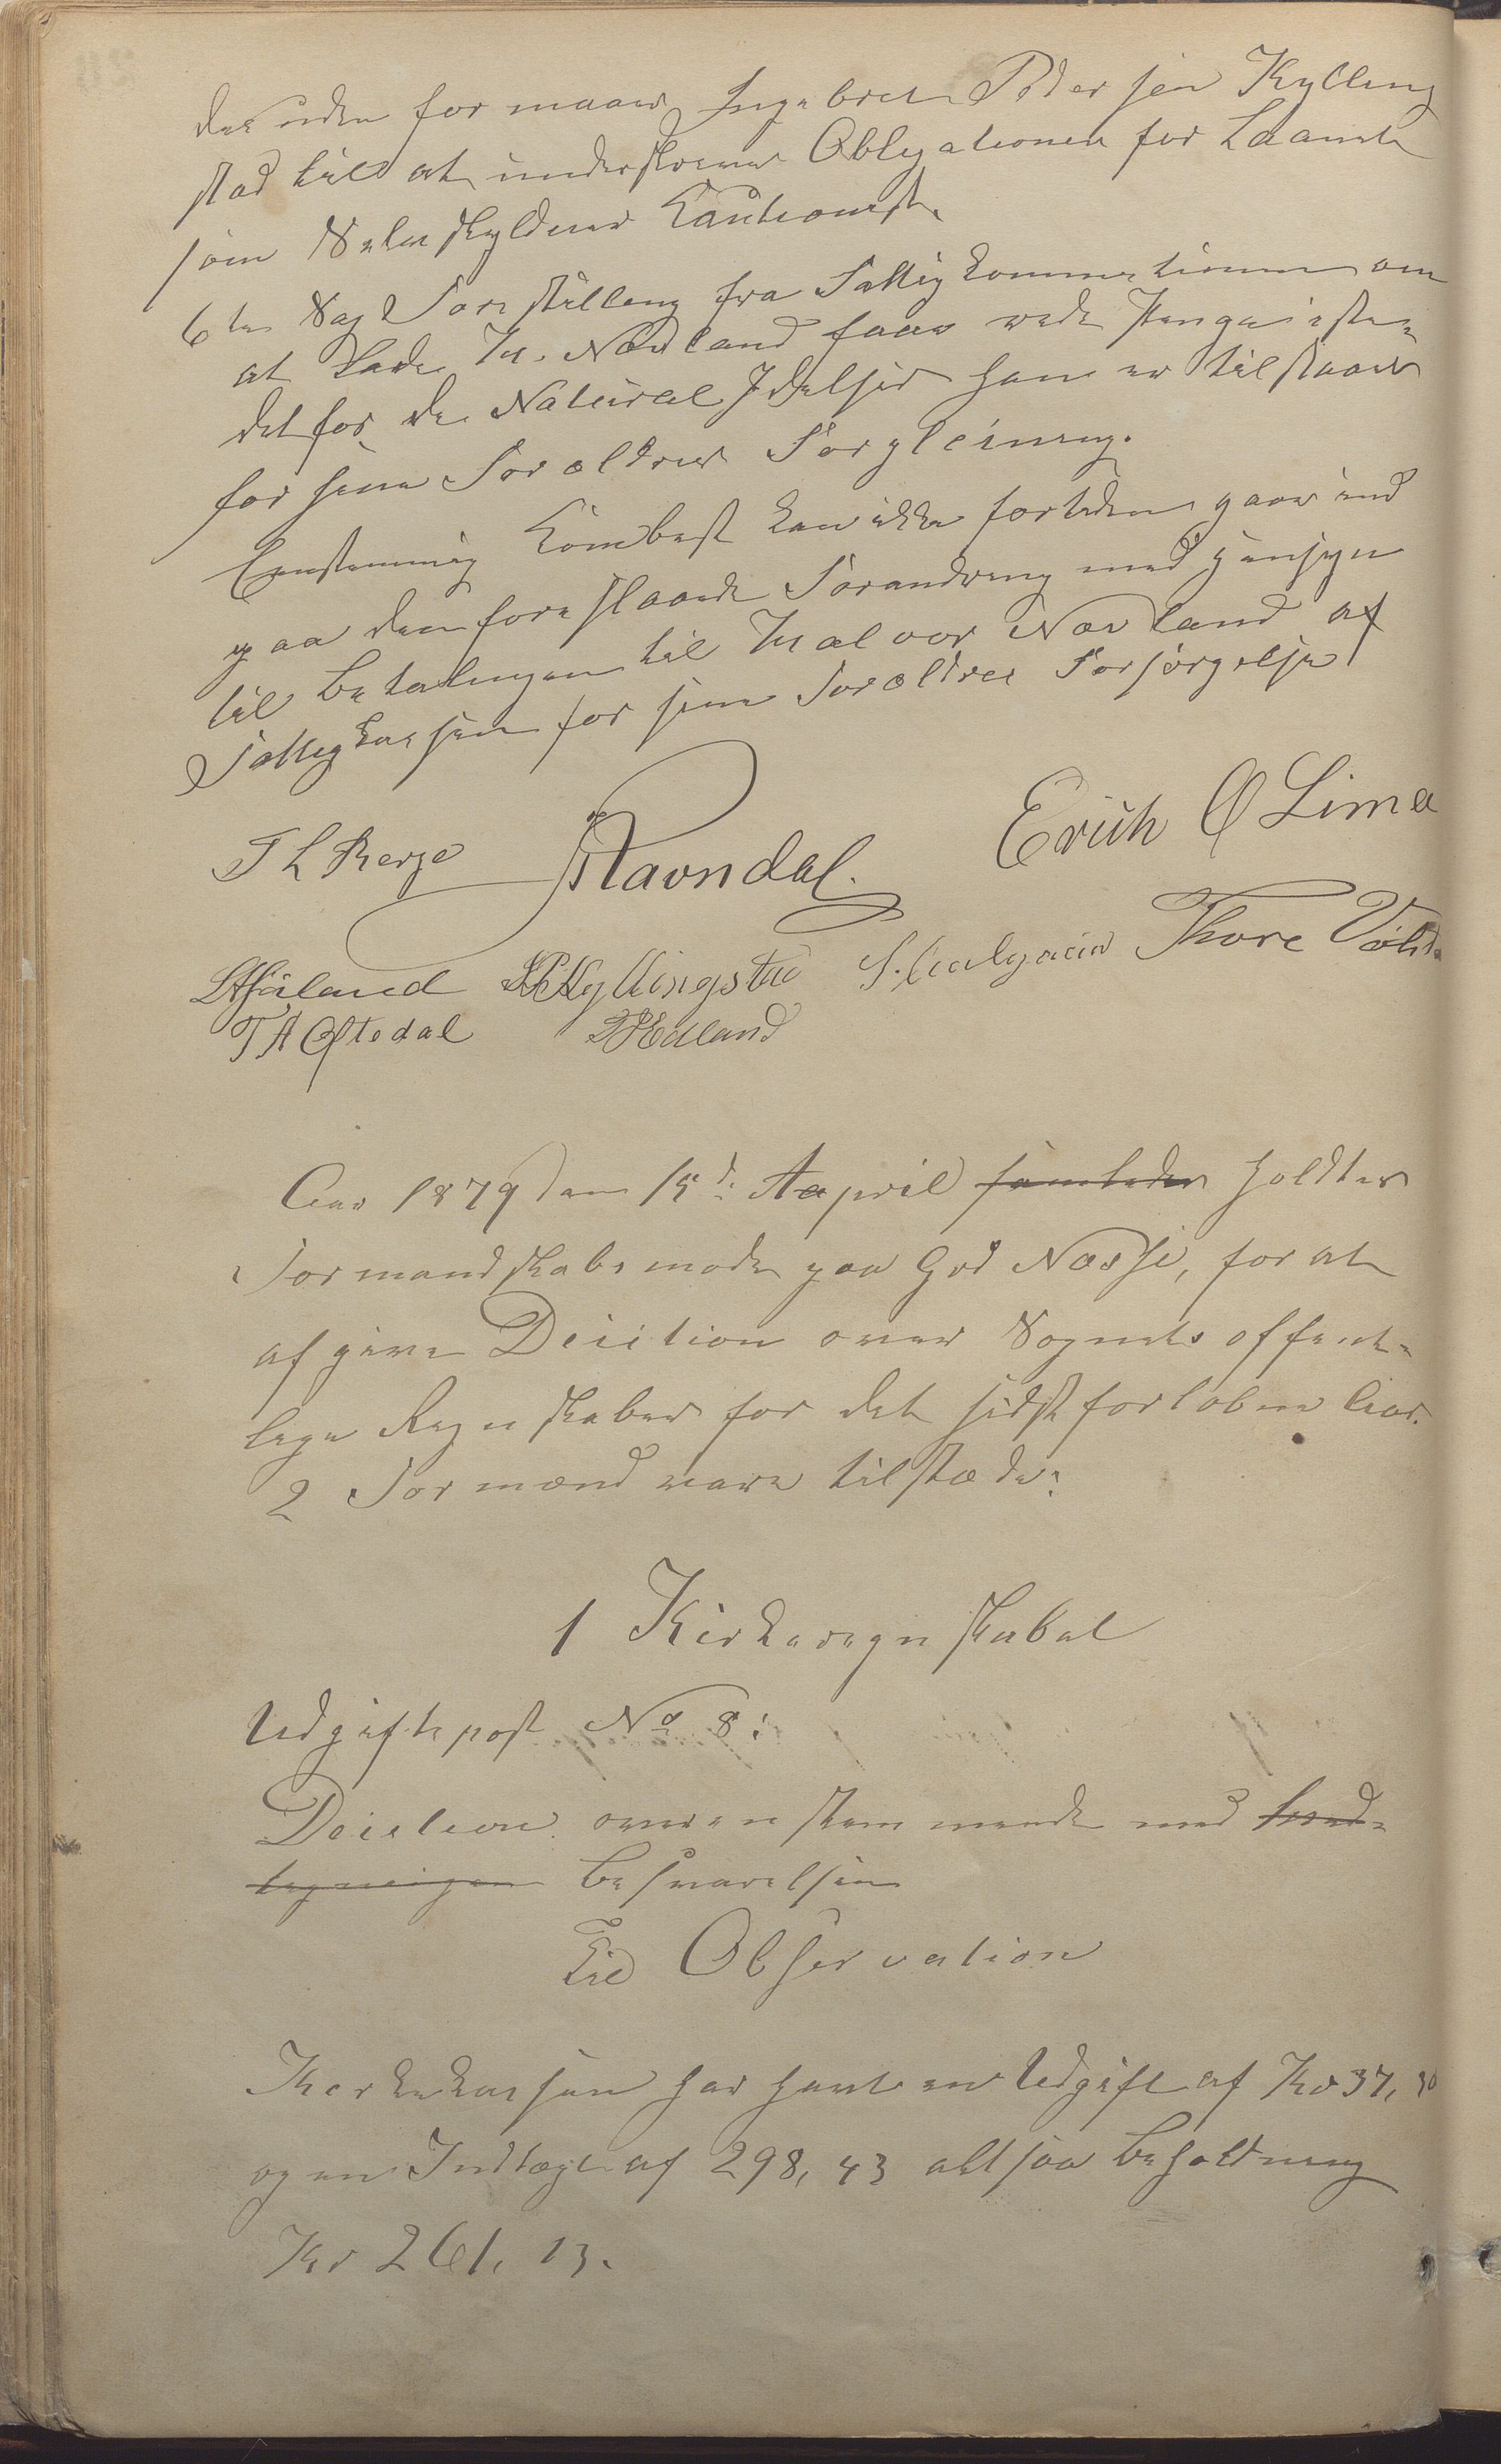 desuden formaaes Ingebret Pedersen Kylling
stad till at underskrive Obligationen for Laanet
som Selvskyldner Kautionist.
6te Sag Forestilling fra Fattigkommisionen om
at lade H. Næsland faae rede Penge iste-
det for de Natural Ydelser han er tilstaaet
for sine Forældres Forpleining.
Eenstemmig Kombest kan ikke fortiden gaae ind
paa den foreslaaede Forandring med Hensyn
til Betalingen til Halvor Næsland af
Fattigkassen for sine Forældres Forsørgelse
Erich O Lima
T L Berge Ravndal.
Thore
Haaland Kyllingstad
T A Oftedal Edland
Aar 1879 den 15de Aapril samledes holdtes
Formandskabsmøde paa Grd Næsse, for at
afgive Decition over Sognets offent-
lege Regnskaber for det sidst forløbne Aar.
2 Formænd vare tilstæde:
1 Kirkeregnskabet
Udgiftspost No 8:
Decition overensstemmende med
Besvarelsen
Til Observation
Kirkekassen har havt en Udgift af Kr 37,30
og en Indtægt af 298,43 altsaa Beholdning
Kr 261,13.